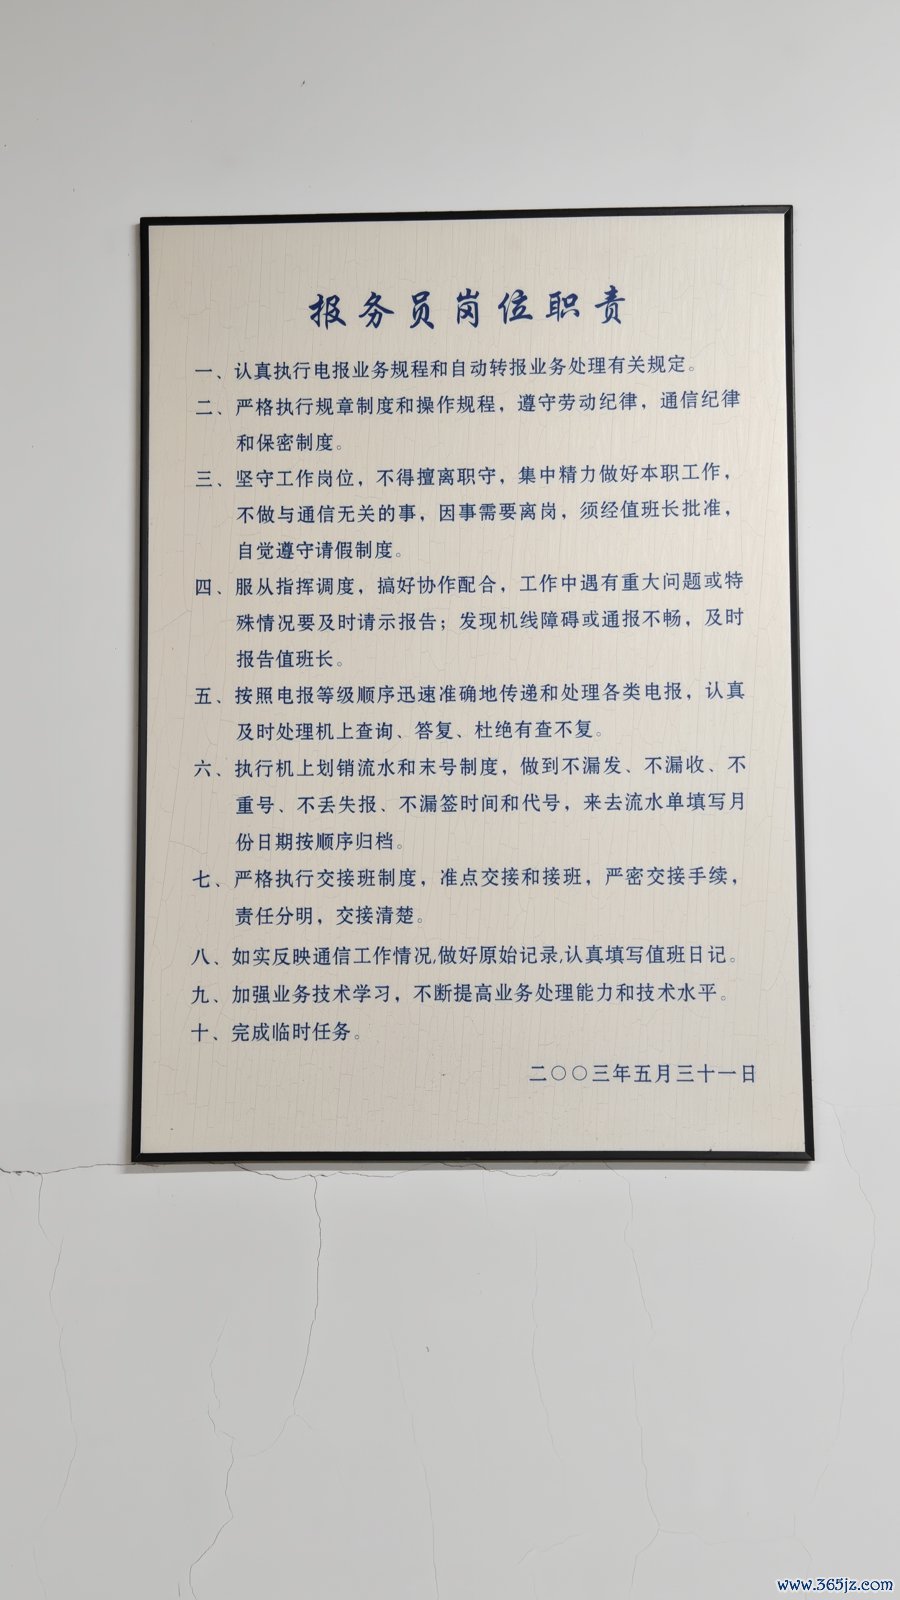 报务员岗位职责
一、认真执行电报业务规程和自动转报业务处理有关规定。
二、严格执行规章制度和操作规程，遵守劳动纪律，通信纪律
和保密制度。
三、坚守工作岗位，不得擅离职守，集中精力做好本职工作，
不做与通信无关的事，因事需要离岗，须经值班长批准，
自觉遵守请假制度。
四、服从指挥调度，搞好协作配合，工作中遇有重大问题或特
殊情况要及时请示报告；发现机线障碍或通报不畅，及时
报告值班长。
五、按照电报等级顺序迅速准确地传递和处理各类电报，认真
及时处理机上查询、答复、杜绝有查不复。
六、执行机上划销流水和末号制度，做到不漏发、不漏收、不
重号、不丢失报、不漏签时间和代号，来去流水单填写月
份日期按顺序归档。
七、严格执行交接班制度，准点交接和接班，严密交接手续，
责任分明，交接清楚。
八、如实反映通信工作情况,做好原始记录,认真填写值班日记。
九、加强业务技术学习，不断提高业务处理能力和技术水平。
十、完成临时任务。
二〇〇三年五月三十一日
www.365jz.com